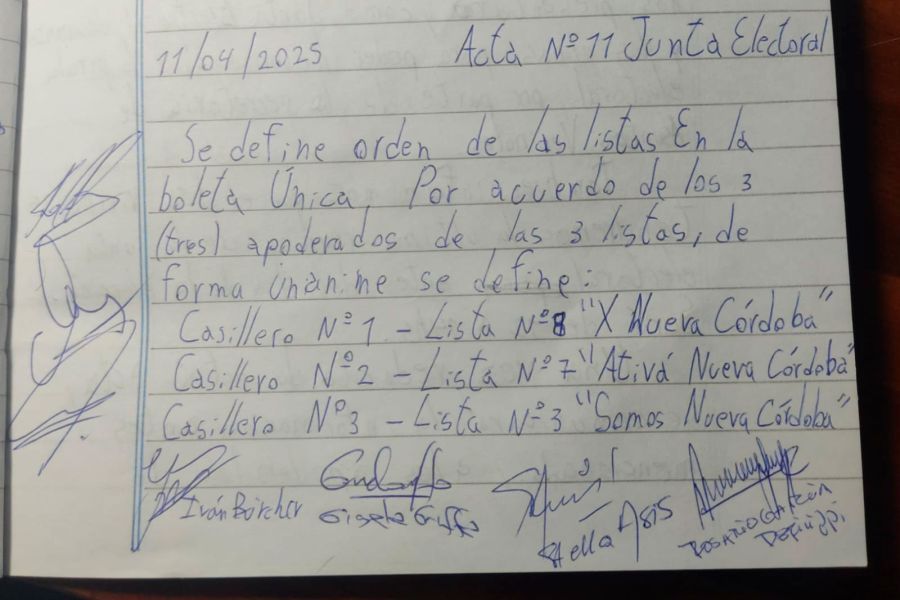 11/04/2025 Acta Nº 11 Junta Electoral
Se define orden de las listas En la
boleta Única. Por acuerdo de los 3
(tres) apoderados de las 3 listas, de
forma únanime se define:
Casillero Nº 1 - Lista Nº 8 "X Nueva Córdoba"
Casillero Nº 2 - Lista Nº 7 "Ativá Nueva Córdoba"
Casillero Nº 3 - Lista Nº 3 "Somos Nueva Córdoba"
Iván Borcher Stella Asis